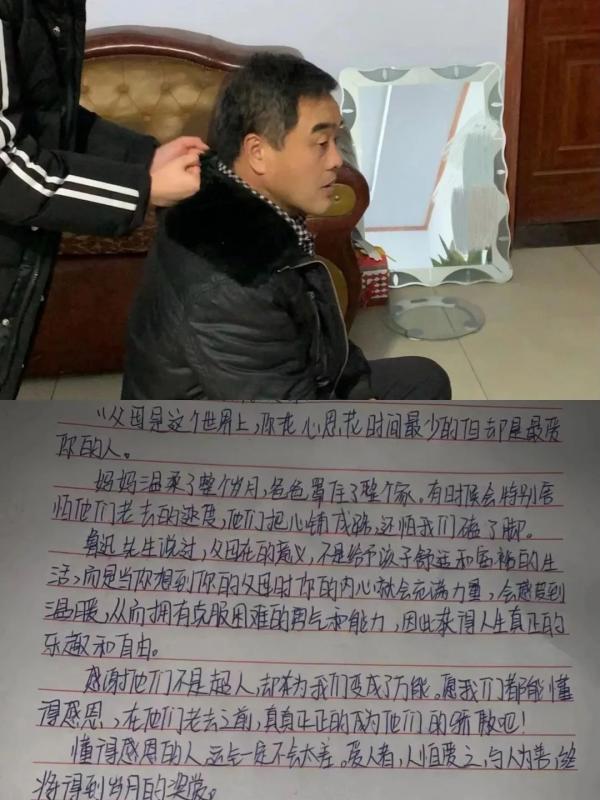 "父母是这个世界上,你花心思,花时间最少的但却是最爱
你的人。
妈妈温柔了整个岁月,爸爸罩住了整个家。有时候会特别害
怕他们老去的速度,他们把心铺成路,还怕我们硌了脚。
鲁迅先生说过,父母存在的意义,不是给予孩子舒适和富裕的生
活,而是当你想到你的父母时你的内心就会充满力量,会感觉到
温暖,从而拥有克服困难的勇气和能力,因此获得人生真正的
乐趣和自由。
感谢他们不是超人,却为我们变成了万能。愿我们都能懂
得感恩,在他们老去之前,真真正正的成为他们的骄傲吧!
懂得感恩的人,运气一定不会太差。爱人者,人恒爱之,与人为善,终
将得到岁月的奖赏。